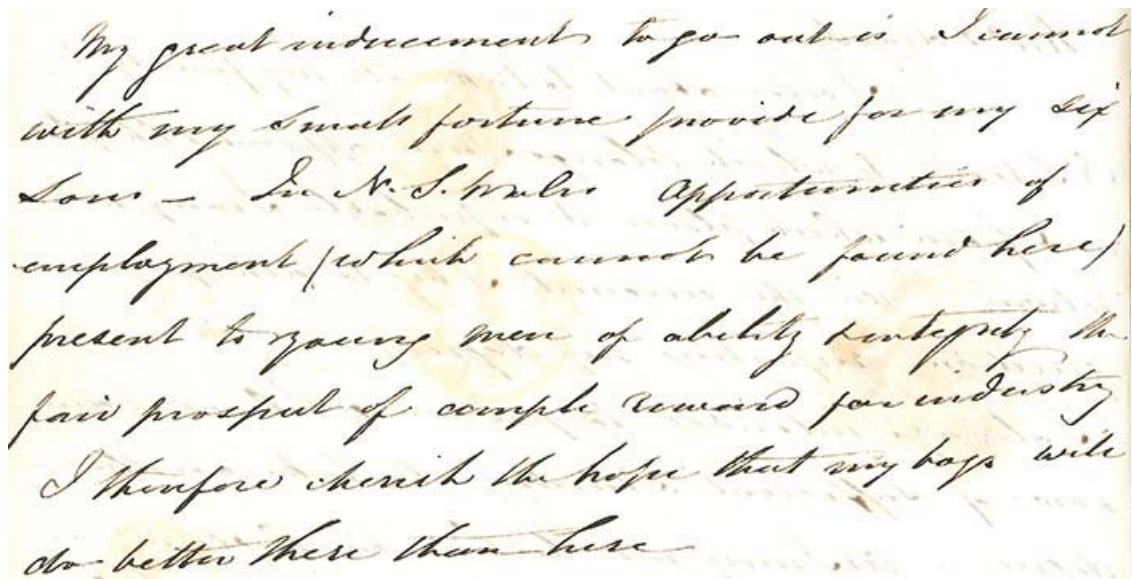 My great inducement to go out is I cannot
with my small fortune provide for my six
Sons – In N. S. Wales opportunities of
employment (which cannot be found here)
present to young men of ability & integrity the
fair prospect of ample reward for industry
I therefore cherish the hope that my boys will
do better there than here